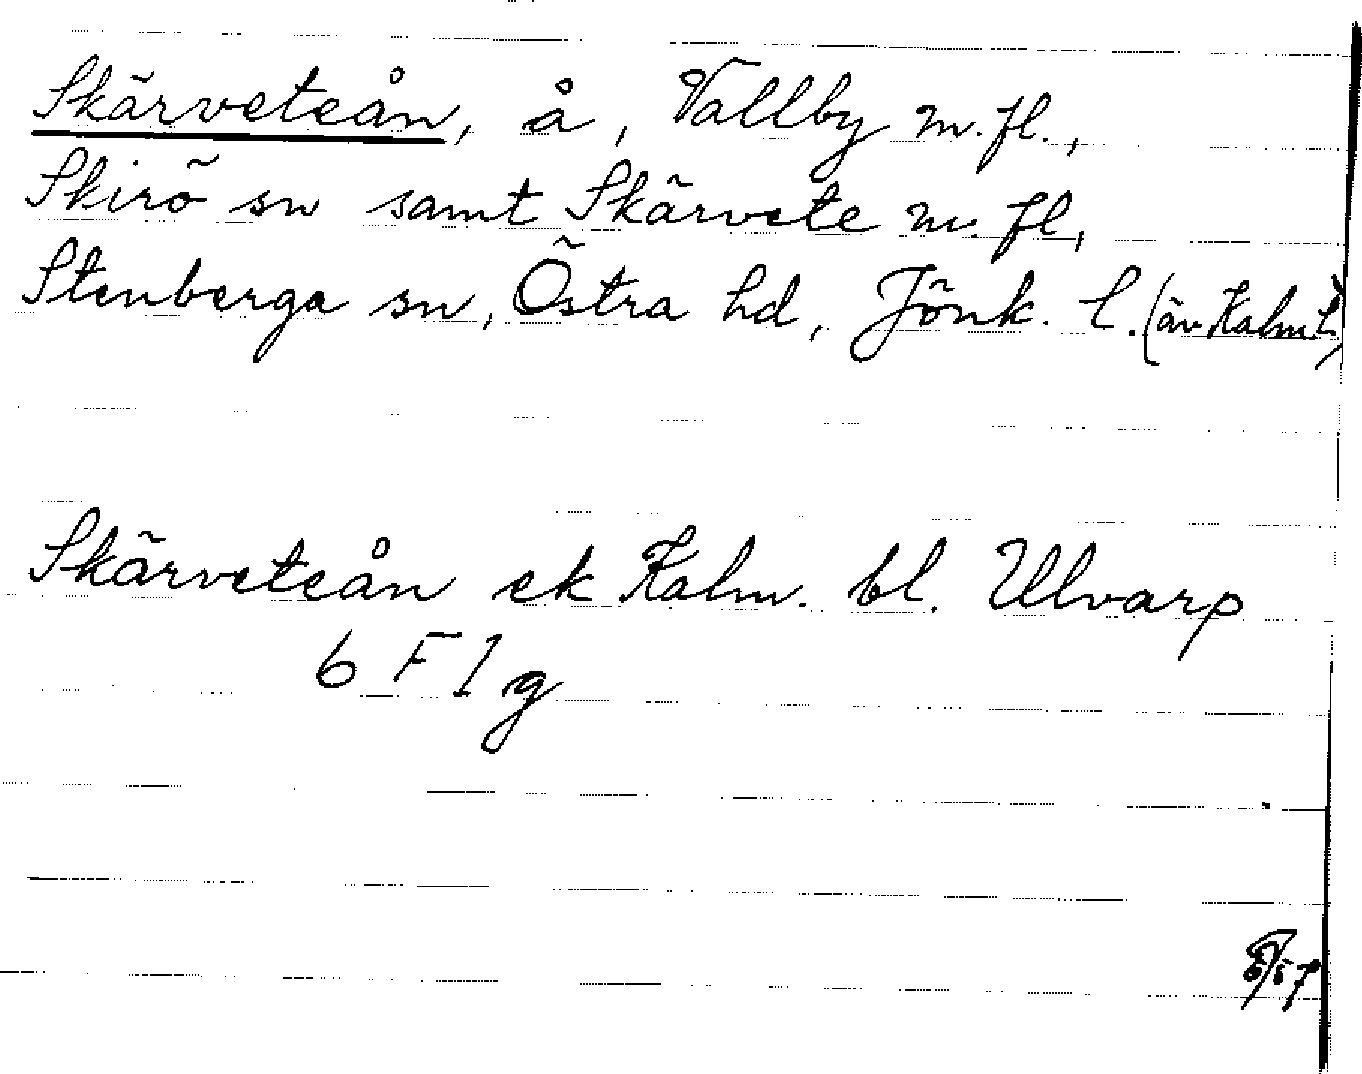 Skärveteån, å, Vallby m. fl.,
Skirö sn samt Skärvete m. fl,
Stenberga sn, Östra hd, Jönk. l. (äv. Kalm. l.)
Skärveteån ek Kalm. bl. Ulvarp
6 F 1 g